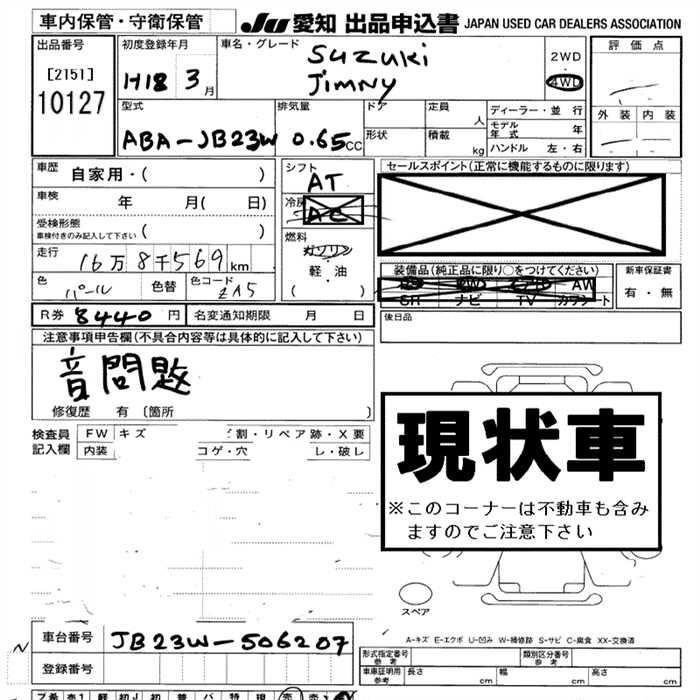 車内保管・守衛保管 JU 愛知 出品申込書 JAPAN USED CAR DEALERS ASSOCIATION
出品番号 初度登録年月 車名・グレード SUZUKI 2WD 評価点
[2151] H18 3月 JIMNY 4WD
10127 型式 排気量 ドア 定員 人 ディーラー・並行 外装 内装
ABA-JB23W 0.65CC 形状 積載 kg モデル年式 年
ハンドル 左・右
車歴 自家用・( ) シフト AT セールスポイント(正常に機能するものに限ります)
車検 年 月( 日) 冷房 AC
受検形態 ( )
車検付きのみ記入して下さい
燃料 ガソリン
走行 16万8千569km 軽・油 装備品(純正品に限り○をつけてください) 新車保証書
色 パール 色替 色コード Z15 ( ) AW 有・無
SR ナビ TV カワシート
R券 8440円 名変通知期限 月 日 後日品
注意事項申告欄(不具合内容等は具体的に記入して下さい)
音問題
修復歴 有〔箇所 〕
検査員 FW キズ 割・リペア跡・X要
記入欄 内装 コゲ・穴 レ・破レ
現状車
※このコーナーは不動車も含み
ますのでご注意下さい
スペア
A-キズ E-エクボ U-凹み W-補修跡 S-サビ C-腐食 XX-交換済
車台番号 JB23W-506207
登録番号
形式指定番号 参考 類別区分番号 参考
車庫証明用 参考 長さ cm 幅 cm 高さ cm